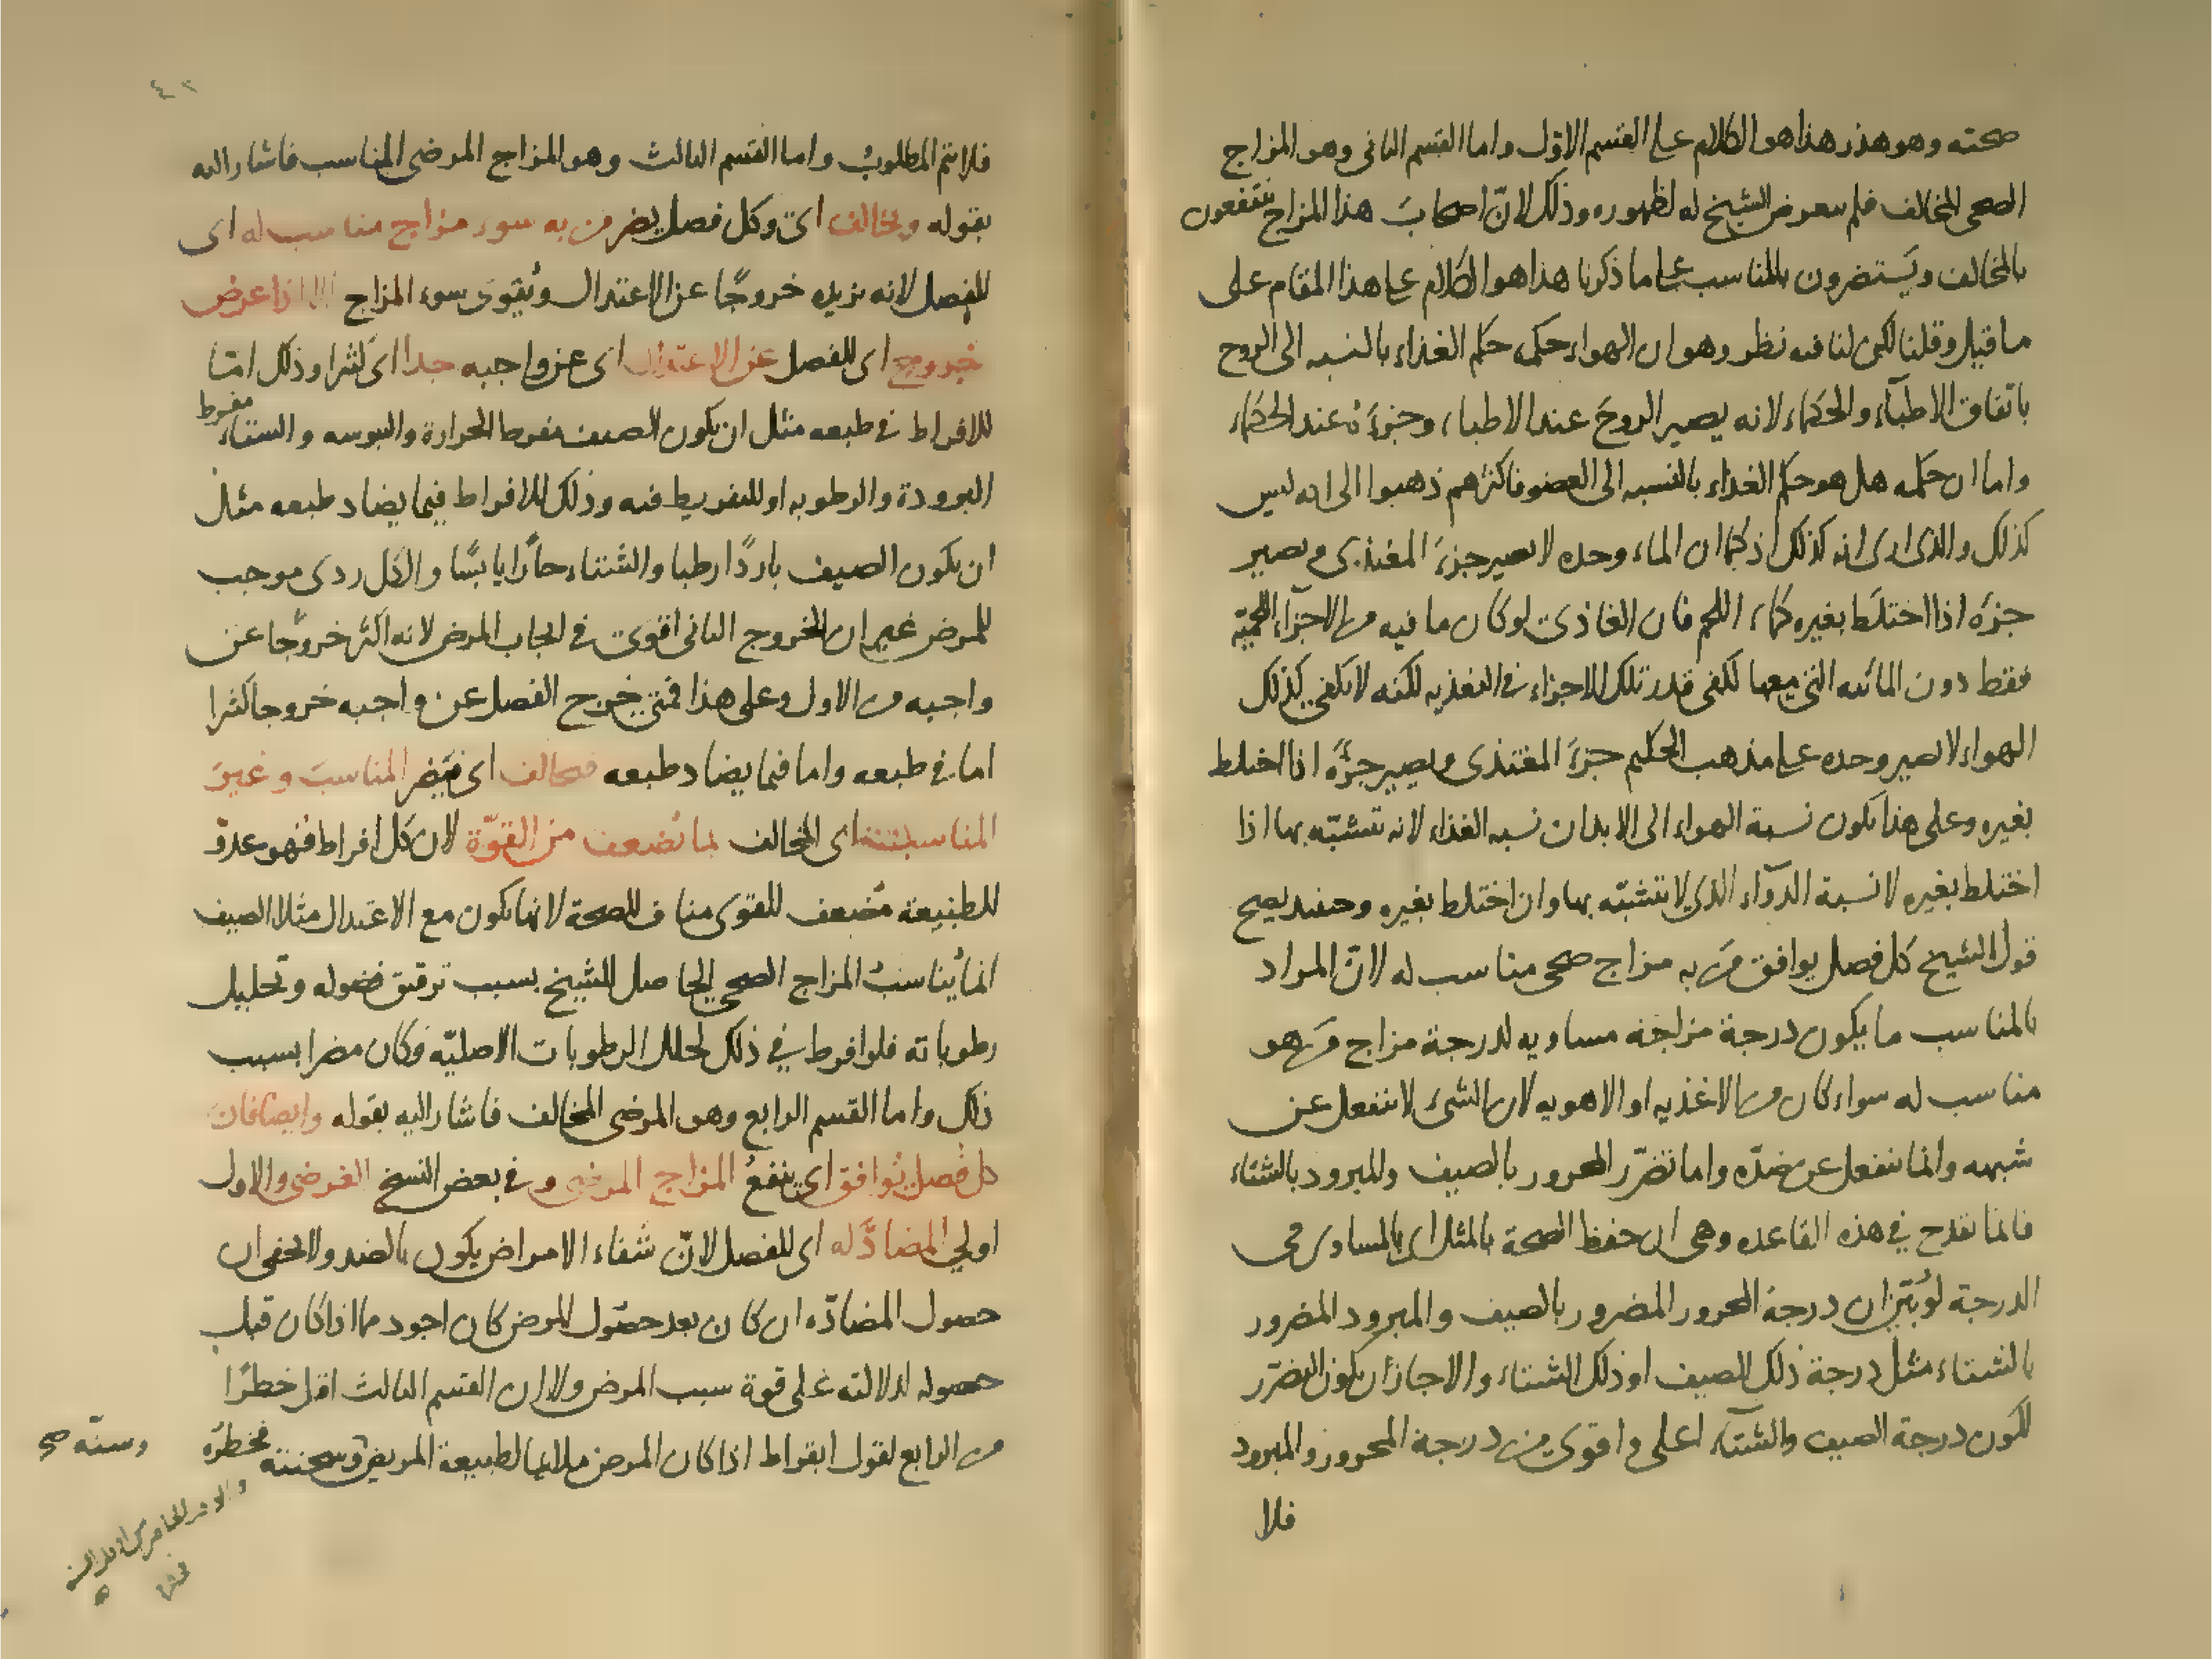 صحته وهو هذر هذا هو الكلام على القسم الاوّل واما القسم الثانى وهو المزاج
الصحى المخالف فلم يتعرض الشيخ له لظهوره وذلك لانّ اصحابَ هذا المزاج ينتفعون
بالمخالف ويَستضرون بالمناسب على ما ذكرنا هذا هو الكلام على هذا المقام على
ما قيل وقلنا لكن لنا فيه نظر وهو ان الهواء حكمه حكم الغذاء بالنسبه الى الروح
باتفاق الاطبّاء والحكماء لانه يصير الروحَ عند الاطباء وجزءَهُ عند الحكماء
واما ان حكمه هل هو حكم الغذاء بالنسبه الى العضو فاكثرهم ذهبوا الى انه ليس
كذلك والذى ارى انه كذلك اذ كما ان الماء وحده لا يصير جزءَ المغتذى ويصير
جزءَه اذا اختلَط بغيره كماء اللحم فان الغاذى لو كان ما فيه من الاجزاء اللحميّه
فقط دون المائيه التى معها لكفى قدر تلك الاجزاء فى التغذيه لكنه لا يكفى كذلك
الهواء لا يصير وحده على مذهب الحكيم جزءَ المغتذى ويصير جزءَه اذا اختلط
بغيره وعلى هذا يكون نسبة الهواء الى الابدان نسبه الغذاء لانه يتشبّه بها اذا
اختلط بغيره لا نسبة الدوآء الذى لا يتشبّه بها وان اختلط بغيره وحينئذ يصح
قول الشيخ كل فصل يوافق مَن به مزاج صحى مناسب له لانّ المراد
بالمناسب ما يكون درجة مزاجه مساويه لدرجة مزاج مَن هو
مناسب له سواء كان من الاغذيه او الاهويه لان الشئ لا ينفعل عن
شبهه وانما ينفعل عن ضدّه واما تضرّر المحرور بالصيف والمبرود بالشتاء
فانما يقدح فى هذه القاعده وهى ان حفظ الصحة بالمثل اى بالمساوى فى
الدرجة لو تبيّن ان درجة المحرور المضرور بالصيف والمبرود المضرور
بالشتاء مثل درجة ذلك الصيف او ذلك الشتاء والا جاز ان يكون التضرّر
لكون درجة الصيف والشتآء اعلى واقوى من درجة المحرور والمبرود
فلا
٤٢
فلا يتم المطلوبُ واما القسم الثالث وهو المزاج المرضى المناسب فاشار اليه
بقوله ويخالف اى وكل فصل يضر من به سوء مزاج مناسب له اى
للفصل لانه يزيده خروجًا عن الاعتدال ويُقوى سوء المزاج الا اذا عرض
خروج اى للفصل عن الاعتدال اى عن واجبه جدا اى كثيرا وذلك امّا
للافراط فى طبعه مثل ان يكون الصيف مفرط الحرارة واليبوسه والشتاء مفرط
البرودة والرطوبه او للتفريط فيه وذلك للافراط فيما يضاد طبعه مثل
ان يكون الصيف باردًا رطبا والشتاء حارًا يابسًا والكل ردى موجب
للمرض غير ان الخروج الثانى اقوى فى ايجاب المرض لانه اكثر خروجًا عن
واجبه من الاول وعلى هذا فمتى خرج الفصل عن واجبه خروجا كثيرا
اما فى طبعه واما فيما يضاد طبعه فيخالف اى فيضر المناسبَ وغيرَ
المناسب اى المخالف بما تُضعف من القوّة لان كل افراط فهو عدوّ
للطبيعة مُضعف للقوى مناف للصحة لانها تكون مع الاعتدال مثلا الصيف
انما يُناسبُ المزاج الصحى الحاصل للشيخ بسبب ترقيق فضوله وتحليل
رطوباته فلو افرط فى ذلك لحلل الرطوبات الاصليّه فكان مضرا بسبب
ذلك واما القسم الرابع وهو المرضى المخالف فاشار اليه بقوله وايضا فان
كل فصل يُوافق اى ينفعُ المزاج المرضى وفى بعض النسخ العرضى والاول
اولى المضادّ له اى للفصل لانّ شفاء الامراض يكون بالضد ولا يخفى ان
حصول المضادّه ان كان بعد حصُول المرض كان اجود مما اذا كان قبل
حصوله لدلالته على قوة سبب المرض ولان القسم الثالث اقل خطرًا
من الرابع لقول ابقراط اذا كان المرض ملايما لطبيعة المريض وسحنته فخطره
وسنّه صح